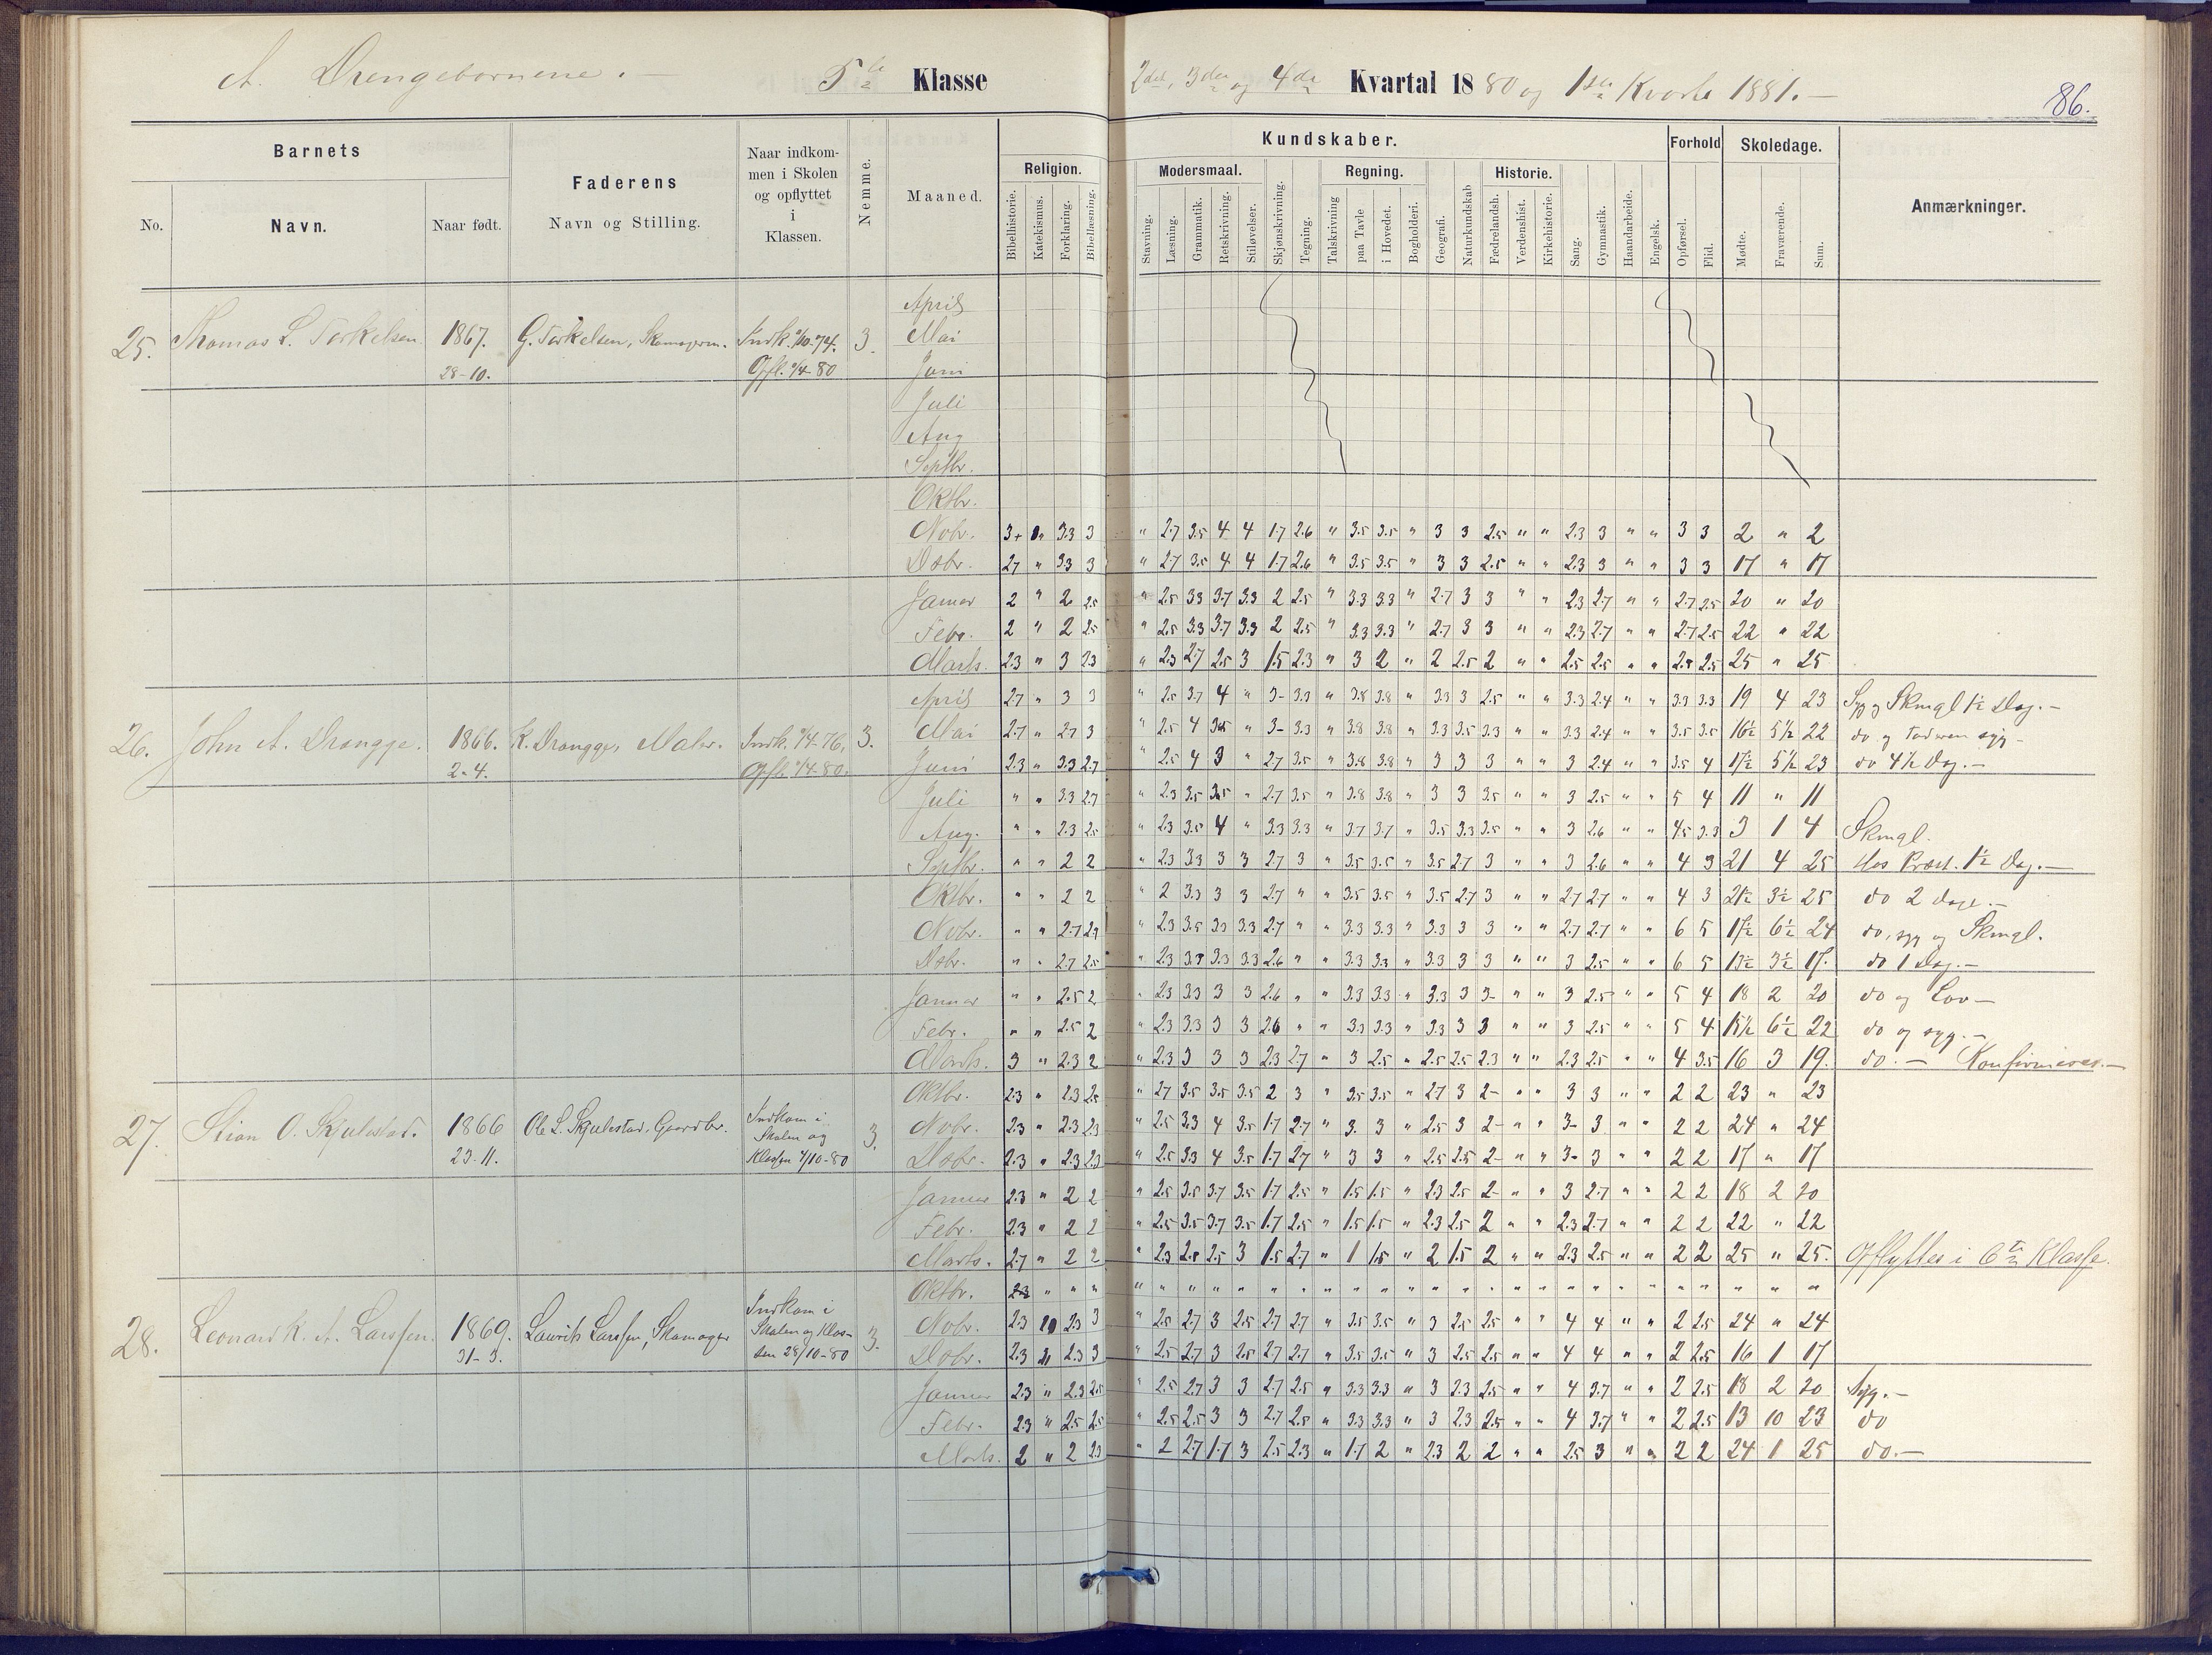 A. Drengebørnene. —
5te Klasse
2det, 3die og 4de Kvartal 1880 og 1ste Kvartal 1881. —
86.
Barnets
No.
Navn.
Naar født.
Faderens
Navn og Stilling.
Naar indkom-
men i Skolen
og opflyttet
i
Klassen.
Nemme.
Maaned.
Kundskaber.
Religion.
Bibelhistorie.
Katekismus.
Forklaring.
Bibellæsning.
Modersmaal.
Stavning.
Læsning.
Grammatik.
Retskrivning.
Stiløvelser.
Skjønskrivning.
Tegning.
Regning.
Talskrivning
paa Tavle
i Hovedet.
Bogholderi.
Geografi.
Naturkundskab
Historie.
Fædrelandsh.
Verdenshist.
Kirkehistorie.
Sang.
Gymnastik.
Haandarbeide.
Engelsk.
Forhold
Opførsel.
Flid.
Skoledage.
Mødte.
Fraværende.
Sum.
Anmærkninger.
25. Thomas L. Terkelsen. 1867. G. Terkelsen, Skomagerm. 3.
28-10.
April
Mai
Juni
Juli
Aug
Septbr.
Oktbr.
Novbr. 3+ 3.3 3 " 2.7 3.5 4 4 1.7 2.6 " 3.5 3.5 " 3 3 2.5 " " 2.3 3 " " 3 3 2 " 2
Dsbr. 2.7 " 3.3 3 " 2.7 3.5 4 4 1.7 2.6 " 3.5 3.5 " 3 3 2.5 " " 2.3 3 " " 3 3 17 " 17
Januar 2 " 2 2.5 " 2.5 3.3 3.7 3.3 2 2.5 " 3.3 3.3 " 2.7 3 3 " " 2.3 2.7 " " 2.7 2.5 20 " 20
Febr. 2 " 2 2.5 " 2.5 3.3 3.7 3.3 2 2.5 " 3.3 3.3 " 2.7 3 3 " " 2.3 2.7 " " 2.7 2.5 22 " 22
Marts. 2.3 " 3 2.3 " 2.3 2.7 2.5 3 1.5 2.3 " 3 2 " 2 2.5 2 " " 2.5 2.5 " " 2.5 2.5 25 " 25
26. John A. Drangge. 1866. K. Drangge, Maler. Indk. 1/4-76, 3.
2-4. Opfl. 1/4-80.
April 2.7 " 3 3 " 2.5 3.7 4 " 3- 3.3 " 3.8 3.8 " 3.3 3 2.5 " " 3.3 2.4 " " 3.3 3.3 19 4 23 Syg og Skmgl 1½ Dag. —
Mai 2.7 " 2.7 3 " 2.5 4 3.5 " 3- 3.3 " 3.8 3.8 " 3.3 3.5 3.3 " " 3.3 2.4 " " 3.5 3.5 16½ 5½ 22 do og syg —
Juni 2.3 " 3.3 2.7 " 2.5 4 3 " 2.7 3.5 " 3.8 3.8 " 3 3 3 " " 3 2.4 " " 3.5 4 17½ 5½ 23 do 4½ Dag. —
Juli " " 3.3 2.7 " 2.3 3.5 3.5 " 2.7 3.5 " 3.8 3.8 " 3 3 3.5 " " 3 2.5 " " 5 4 11 " 11
Aug. " " 2.3 2.5 " 2.3 3.5 4 " 3.3 3.3 " 3.7 3.7 " 3.5 3.3 3.5 " " 3 2.6 " " 4.5 3.3 3 1 4 Skmgl.
Septbr. " " 2 2 " 2.3 3.3 3 3 2.7 3 " 3.5 3.5 " 3.5 2.7 3 " " 3 2.6 " " 4 3 21 4 25 Hos Præst. 1½ Dag. —
Oktbr. " " 2 2 " 2 3.3 3 3 2.7 " " 3.5 3.5 " 3.5 2.7 3 " " 2.7 2.7 " " 4 3 21½ 3½ 25 do 2 dage. —
Novbr. " " 2.7 " 2.3 3.5 3.3 3.3 2.7 " " 3.3 3.3 " 3.3 3 3 " " 2.7 2.7 " " 6 5 17½ 6½ 24 do, syg og Skmgl.
Dsbr. " " 2.7 2.5 " 2.3 3.3 3.3 3.3 2.6 " " 3.3 3.3 " 3.3 3 3 " " 3 2.5 " " 6 5 13½ 3½ 17. do 1 Dag. —
Januar " " 2.5 2 " 2.3 3.3 3 3 2.6 " " 3.3 3.3 " 3.3 3 3- " " 3 2.5 " " 5 4 18 2 20 do og Lov —
Febr. " " 2.5 2 " 2.3 3.3 3 3 2.6 " " 3.3 3.3 " 3.3 3 3 " " 3 2.5 " " 5 4 15½ 6½ 22 do og syg. —
Marts. 3 " 2.3 2 " 2.3 3 3 3 2.3 2.7 " 3 2.5 " 2.5 2.5 2.3 " " 2.3 2.5 " " 4 3.5 16 3 19. do. — Konfirmeres. —
27. Stian O. Skjulestad. 1866 Ole L. Skjulestad, Gaardbr. Indkom i Skolen og Klassen 1/10-80 3.
23-11.
Oktbr. 2.3 " 2.3 2.5 " 2.7 3.5 3.5 3.5 2 3 " 3.5 3.5 " 2.7 3 2- " " 3 3 " " 2 2 23 " 23
Novbr. 2.3 " 2.3 2.3 " 2.5 3.3 4 3.5 1.7 2.7 " 3. 3 " 2.5 3 2- " " 3- 3 " " 2 2 24 " 24
Dsbr. 2.3 " 2.3 2.3 " 2.5 3.3 4 3.5 1.7 2.7 " 3 3 " 2.5 2.5 2- " " 3- 3 " " 2 2 17 " 17
Januar 2.3 " 2 2 " 2.5 3.5 3.7 3.5 1.7 2.5 " 1.5 1.5 " 2.3 2.5 2- " " 3 2.7 " " 2 2 18 2 20
Febr. 2.3 " 2 2 " 2.5 3.5 3.7 3.5 1.7 2.5 " 1.5 1.5 " 2.3 2.5 2 " " 2.3 2.7 " " 2 2 22 " 22
Marts. 2.7 " 2 2 " 2.3 2.5 2.5 3 1.5 2.7 " 1 1.5 " 2 1.5 2 " " 2.3 2.5 " " 2 2 25 " 25. Opflyttes i 6te Klasse.
28. Leonard K. A. Larssen. 1869. Laurits Larssen, Skomager Indkom i Skolen og Klas- sen 28/10-80 3.
31-3.
Oktbr. " " " " " " " " " " " " " " " " " " " " " " " " " " " " "
Novbr. 2.3 2.3 3 " 2.5 2.7 3 2.5 2.7 2.7 " 3.5 3.5 " 3 2.5 2.5 " " 4 4 " " 2 2.5 24 " 24
Dsbr. 2.3 2.3 3 " 2.5 2.7 3 2.5 2.7 2.7 " 3.5 3.5 " 3 2.5 2.5 " " 4 4 " " 2 2.5 16 1 17
Januar 2.3 " 2.3 2.5 " 2.5 2.7 3 3 2.7 2.5 " 3.3 3.3 " 3 2.3 2.5 " " 4 3.7 " " 2 2.5 18 2 20 Syg. —
Febr. 2.3 " 2.5 2.5 " 2.5 2.5 3 3 2.7 2.5 " 3.3 3.3 " 3 2.3 2.5 " " 4 3.7 " " 2 2.5 13 10 23 do
Marts. 2 " 2 2.3 " 2 2.7 1.7 3 2.5 2.3 " 1.7 2 " 2.3 2 2 " " 2.5 3 " " 2 2 24 1 25 do. —